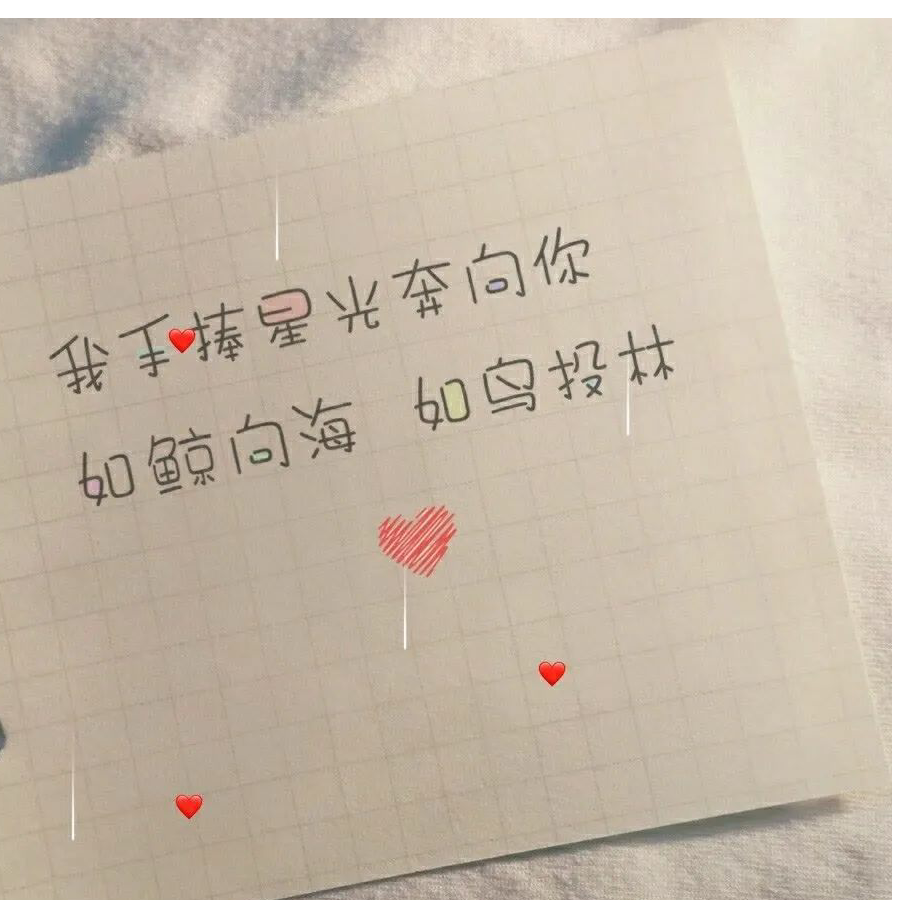 我手捧星光奔向你
如鲸向海 如鸟投林